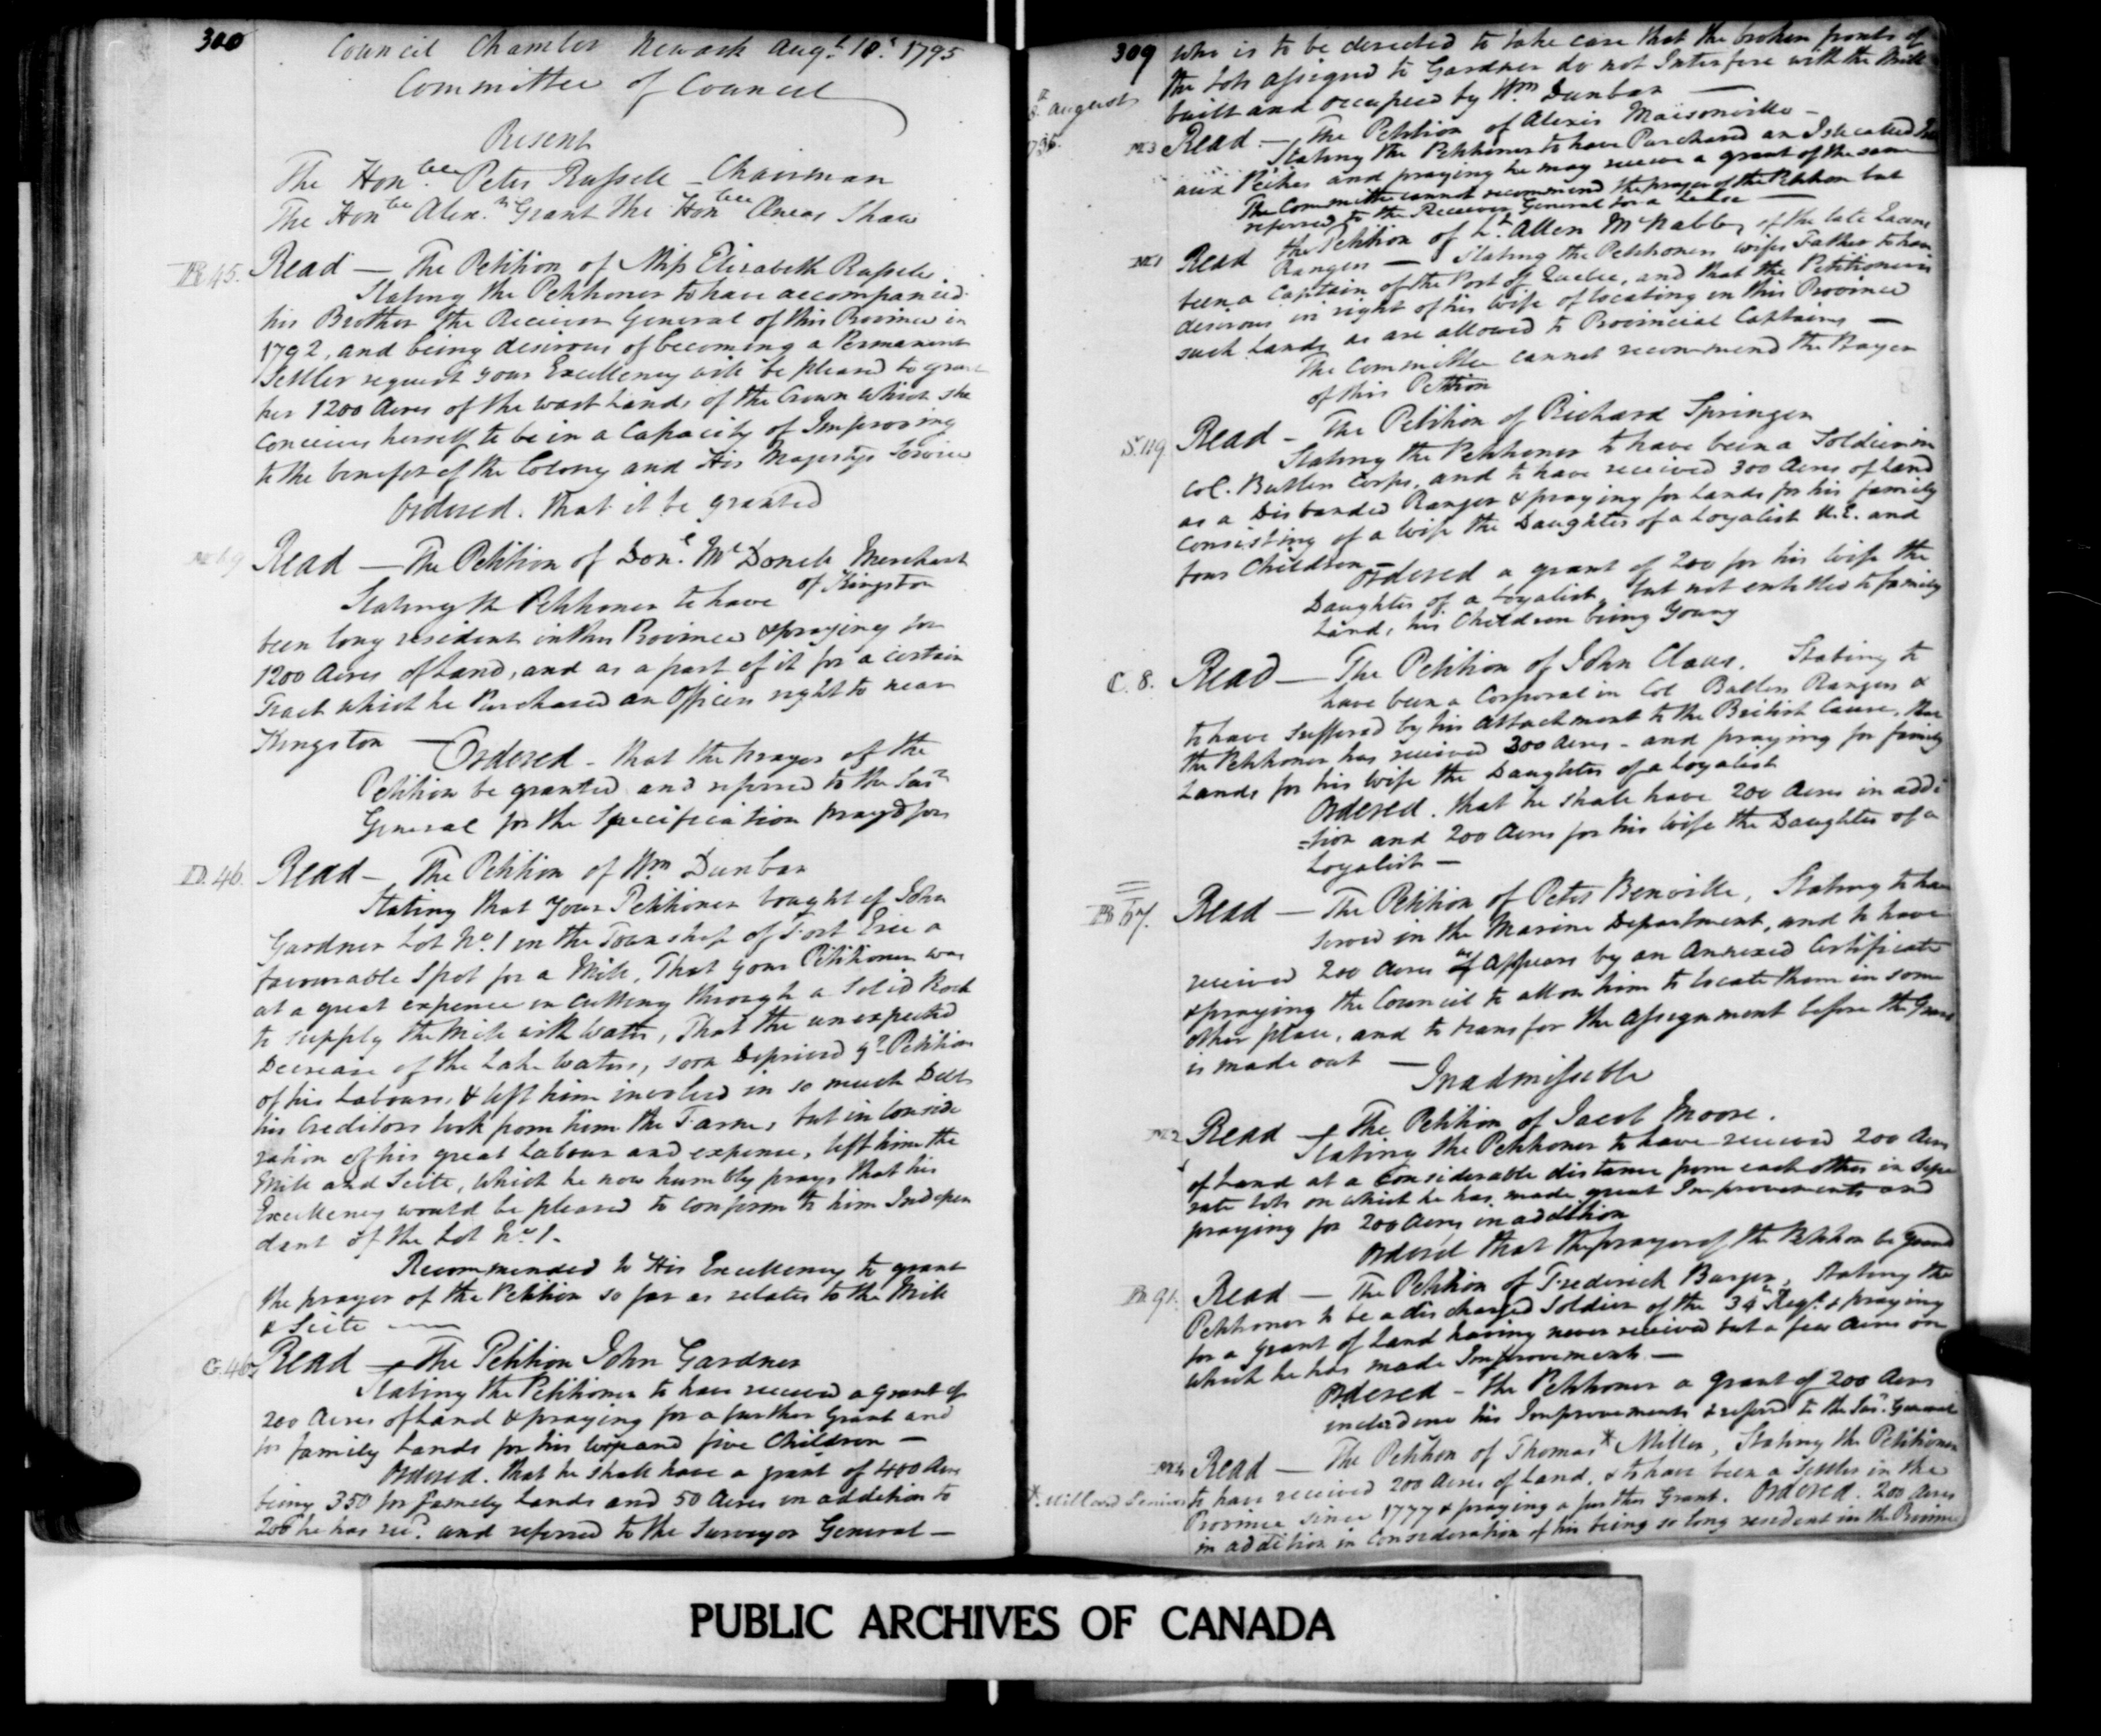 300
Council Chamber Newark Augt. 10t. 1795
Committee of Council
Present
The Honble. Peter Russell Chairman
The Honble Alexr. Grant The Honble Æneas Shaw
R 45. Read — The Petition of Miss Elizabeth Russell
Stating the Petitioner to have accompanied
his Brother the Receiver General of this Province in
1792, and being desirous of becoming a Permanent
Settler request your Excellency will be pleased to grant
her 1200 Acres of the wast Lands of the Crown which she
conceives herself to be in a Capacity of Improving
to the benefit of the Colony and His Majestys Service
Ordered. that it be granted
Read — The Petition of Don. Mc Donell Merchant
of Kingston
Stating the Petitioner to have
been long resident in this Province & praying for
1200 Acres of Land, and as a part of it for a certain
Tract which he Purchased an Officers right to near
Kingston — Ordered - that the prayer of the
Petition be granted and referred to the Sur
General for the Specification prayed for
D. 46. Read — The Petition of Wm Dunbar
Stating that your Petitioner bought of John
Gardner Lot No. 1 in the Township of Fort Erie a
favourable Spot for a Mill, That your Petitioner was
at a great expence in cutting through a Solid Rock
to supply the Mill with Water, That the unexpected
Decrease of the Lake Waters, soon Deprived yr. Petition
of his Labours, & left him involved in so much Debt
his Creditors took from him the Farm, but in conside
ration of his great Labour and expence, left him the
Mill and Seite, which he now humbly prays that his
Excellency would be pleased to confirm to him Indepen
dant of the Lot No. 1 -
Recommended to His Excellency to grant
the prayer of the Petition so far as relates to the Mill
& Seite —
G. 46 Read — The Petition John Gardner
Stating the Petitioner to have received a grant of
200 Acres of Land & praying for a further Grant and
for family Lands for his wife and five Children —
Ordered. that he shall have a grant of 400 Acres
being 350 for family Lands and 50 Acres in addition to
200 he has recd. and referred to the Surveyor General —
309 who is to be directed to take care that the broken fronts of
the Lots assigned to Gardner do not Interfere with the Mill
built and occupied by Wm Dunbar —
August
M 3 Read — The Petition of Alexis Maisonville —
Stating the Petitioner to have Purchased an Isle called
aux Pêches and praying he may receive a grant of the same
The Committee cannot recommend the prayer of the Petition but
referred to the Receiver General for a Lease —
M 1 Read the Petition of Lt. Allen McNabb, of the late Queens
Rangers — Stating the Petitioners wifes Father to have
been a Captain of the Port of Quebec, and that the Petitioner is
desirous in right of his wife of locating in this Province
such Lands as are allowed to Provincial Captains —
The Committee cannot recommend the Prayer
of this Petition
S. 119 Read — The Petition of Richard Springer
Stating the Petitioner to have been a Soldier in
Col. Butlers Corps, and to have received 300 Acres of Land
as a Disbanded Ranger & praying for Lands for his family
consisting of a wife the Daughter of a Loyalist U.E. and
four Children —
Ordered a grant of 200 for his Wife the
Daughter of a Loyalist, but not entitled to family
Land, his Children being Young
C. 8. Read — The Petition of John Claus. Stating to
have been a Corporal in Col Butlers Rangers &
to have suffered by his attachment to the British Cause, that
the Petitioner has received 300 Acres — and praying for family
Lands for his wife the Daughter of a Loyalist
Ordered. that he shall have 200 Acres in addi
=tion and 200 Acres for his Wife the Daughter of a
Loyalist —
B 67. Read — The Petition of Peter Benville, Stating to have
served in the Marine Department, and to have
received 200 Acres as appears by an Annexed Certificate
& praying the Council to allow him to locate them in some
other place, and to transfer the Assignment before the Grant
is made out — Inadmissible
M 2 Read — The Petition of Jacob Moore.
Stating the Petitioner to have received 200 Acres
of Land at a Considerable distance from each other in Sepa
rate Lots on which he has made great Improvements and
praying for 200 Acres in addition
Ordered that the prayer of the Petition be Granted
B 91. Read — The Petition of Frederick Burger, Stating the
Petitioner to be a discharged Soldier of the 34th Regt. & praying
for a grant of Land having never received but a few Acres on
which he has made Improvements —
Ordered — The Petitioner a grant of 200 Acres
including his Improvements & referred to the Sur. General
Read — The Petition of Thomas * Miller, Stating the Petitioner
to have received 200 Acres of Land, & to have been a Settler in the
* Millard Senior
Province since 1777 & praying a further Grant. Ordered. 200 Acres
in addition in Consideration of his being so long resident in the Province
PUBLIC ARCHIVES OF CANADA